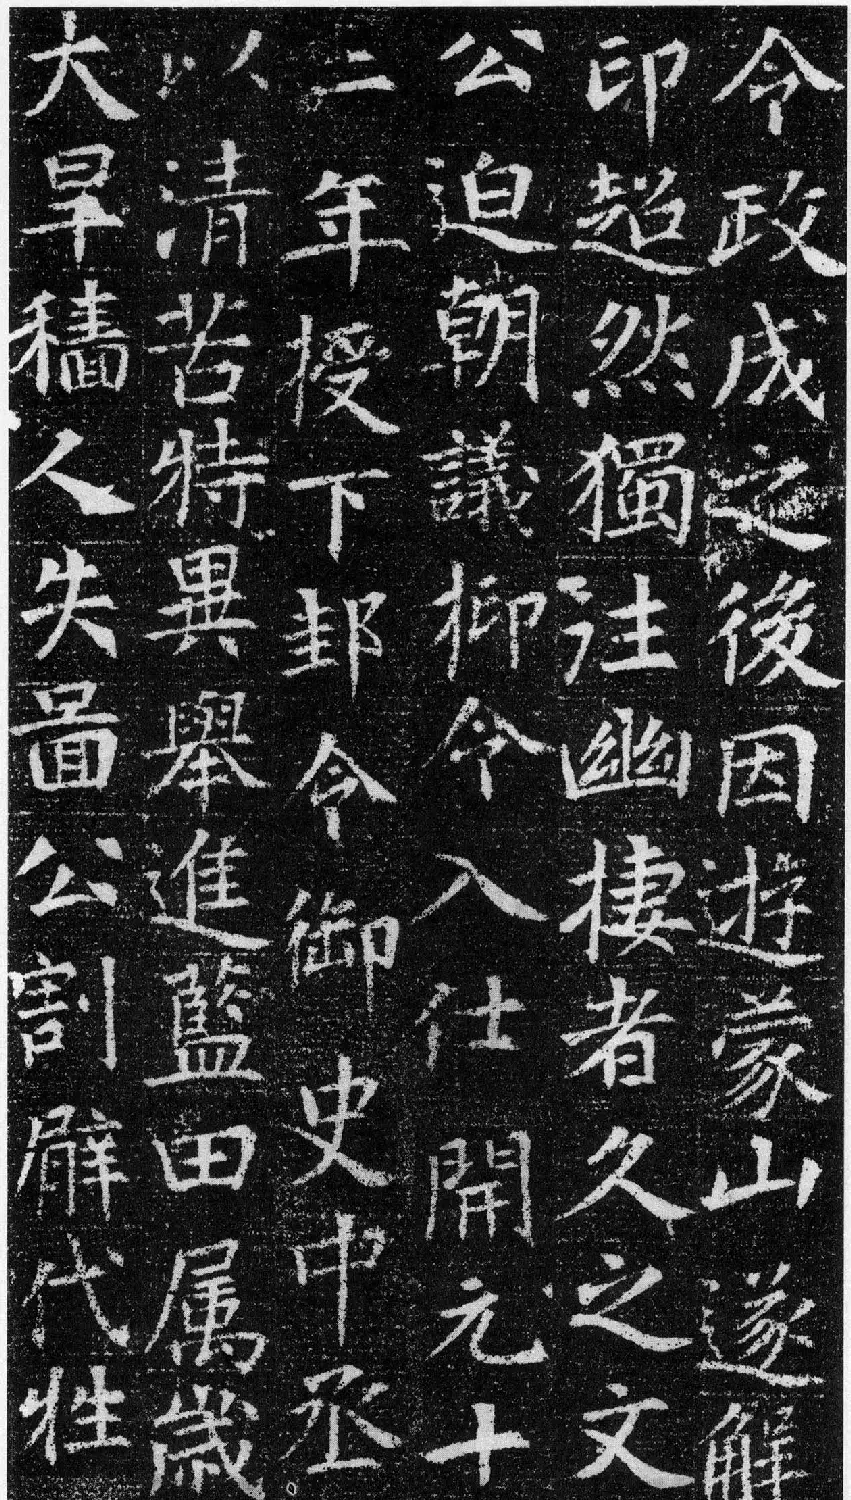 令政成之後因遊蒙山遂解
印超然獨往幽棲者久之文
公迫朝議抑令入仕開元十
二年授下邽令御史中丞
以清苦特異舉進藍田属歳
大旱穡人失啚公割辟代牲